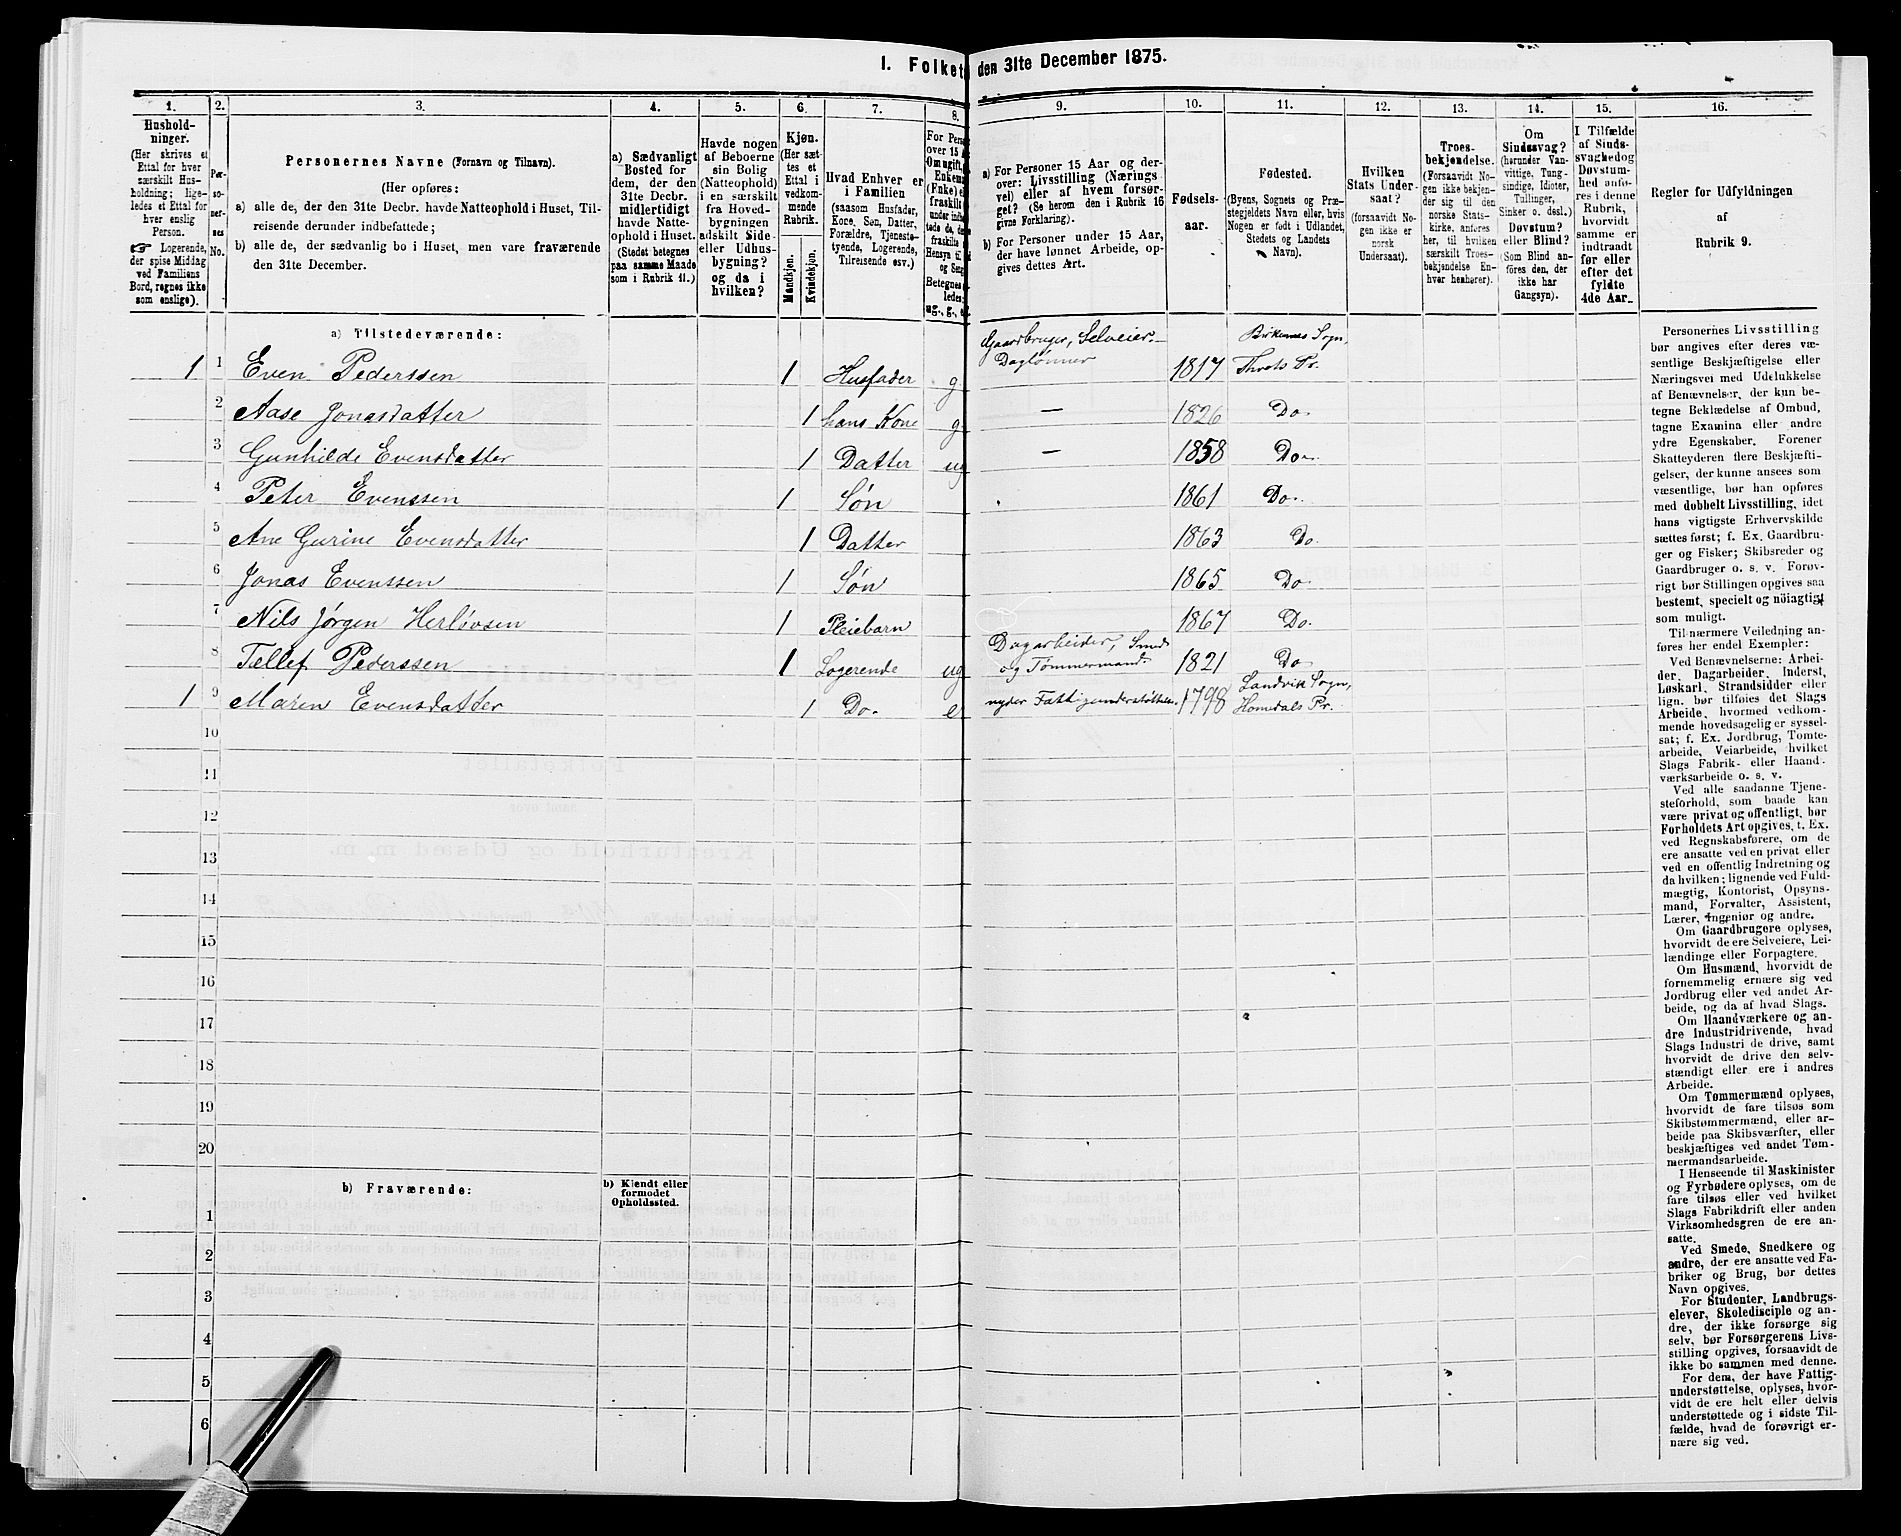 I. Folket
den 31te December 1875.
1.
2.
3.
4.
5.
6.
7.
8.
9.
10.
11.
12.
13.
14.
15.
16.
Hushold-
ninger.
(Her skrives et
Ettal for hver
særskilt Hus-
holdning; lige-
ledes et Ettal for
hver enslig
Person.
☞ Logerende,
der spise Middag
ved Familiens
Bord, regnes ikke
som enslige).
Per-
so-
ner-
nes
No.
Personernes Navne (Fornavn og Tilnavn).
(Her opføres:
a) alle de, der den 31te Decbr. havde Natteophold i Huset, Til-
reisende derunder indbefattede;
b) alle de, der sædvanlig bo i Huset, men vare fraværende
den 31te December.
a) Sædvanligt
Bosted for
dem, der den
31te Decbr.
midlertidigt
havde Natte-
ophold i Huset.
(Stedet betegnes
paa samme Maade
som i Rubrik 11.)
Havde nogen
af Beboerne
sin Bolig
(Natteophold)
i en særskilt
fra Hoved-
bygningen
adskilt Side-
eller Udhus-
bygning?
og da i
hvilken?
Kjøn.
(Her sæt-
tes et
Ettal i
vedkom-
mende
Rubrik.
Mandkjøn.
Kvindekjøn.
Hvad Enhver er
i Familien
(saasom Husfader,
Kone, Søn, Datter,
Forældre, Tjeneste-
tyende, Logerende,
Tilreisende osv.)
For Pers
over 15
Om ugift,
Enkem
(Fnke) e
fraskilt
Hensyn til
og Seng
Betegnes
ledes:
ug., g., e.
a) For Personer 15 Aar og der-
over: Livsstilling (Nærings
vei) eller af hvem forsør-
get? (Se herom den i Rubrik 16
givne Forklaring).
b) For Personer under 15 Aar,
der have lønnet Arbeide, op-
gives dettes Art.
Fødsels-
aar.
Fødested.
(Byens, Sognets og Præ-
stegjeldets Navn eller, hvis
Nogen er født i Udlandet,
Stedets og Landets
Navn).
Hvilken
Stats Under-
saat?
(forsaavidt No-
gen ikke er
norsk
Undersaat).
Troes-
bekjendelse.
(Forsaavidt No-
gen ikke bekjen-
der sig til den
norske Stats-
kirke, anføres
her, til hvilken
særskilt Troes-
bekjendelse En-
hver henhører).
Om
Sindssvag?
(herunder Van-
vittige, Tung-
sindige, Idioter,
Tullinger,
Sinker o. desl.)
Døvstum?
eller Blind?
(Som Blind an-
føres den, der
ikke har
Gangsyn).
I Tilfælde
af Sinds-
svaghed og
Døvstum-
hed anfø-
res i denne
Rubrik,
hvorvidt
samme er
indtraadt
før eller
efter det
fyldte
4de Aar.
Regler for Udfyldningen
af
Rubrik 9.
a) Tilstedeværende:
1 1 Even Pederssen 1 Husfader g Gaardbruger, Selveier. Daglønner 1817 Birkenæs Sogn, Thvets Pr.
2 Aase Jonasdatter 1 hans Kone g — 1826 Do.
3 Gunhilde Evensdatter 1 Datter ug — 1858 Do.
4 Peter Evenssen 1 Søn 1861 Do.
5 Ane Gurine Evensdatter 1 Datter 1863 Do.
6 Jonas Evenssen 1 Søn 1865 Do.
7 Nils Jørgen Herløvsen 1 Pleiebarn 1867 Do.
8 Tellef Pederssen 1 Logerende ug Dagarbeider, Smed og Tømmermand. 1821 Do
1 9 Maren Evensdatter 1 Do. e nyder Fattigunderstøttelse. 1798 Landvik Sogn, Homedals Pr.
10
11
12
13
14
15
16
17
18
19
20
b) Fraværende:
b) Kjendt eller
formodet
Opholdssted.
1
2
3
4
5
6
Personernes Livsstilling
bør angives efter deres væ-
sentlige Beskjæftigelse eller
Næringsvei med Udelukkelse
af Benævnelser, der kun be-
tegne Beklædelse af Ombud,
tagne Examina eller andre
ydre Egenskaber. Forener
Skatteyderen flere Beskjæfti-
gelser, der kunne ansees som
væsentlige, bør han opføres
med dobbelt Livsstilling, idet
hans vigtigste Erhvervskilde
sættes først; f. Ex. Gaardbru-
ger og Fisker; Skibsreder og
Gaardbruger o. s. v. Forøv-
rigt bør Stillingen opgives saa
bestemt, specielt og nöiagtigt
som muligt.
Til nærmere Veiledning an-
føres her endel Exempler:
Ved Benævnelserne: Arbei-
der, Dagarbeider, Inderst,
Løskarl, Strandsidder eller
lign. bør tilføies det Slags
Arbeide, hvormed vedkom-
mende hovedsagelig er syssel-
sat; f. Ex. Jordbrug, Tomte-
arbeide, Veiarbeide, hvilket
Slags Fabrik- eller Haand-
værksarbeide o. s. v.
Ved alle saadanne Tjene-
steforhold, som baade kan
være privat og offentligt, bør
Forholdets Art opgives, t. Ex.
ved Regnskabsførere, om de
ere ansatte ved en privat eller
ved en offentlig Indretning og
da hvilken; lignende ved Fuld-
mægtig, Kontorist, Opsyns-
mand, Forvalter, Assistent,
Lærer, Ingeniør og andre.
Om Gaardbrugere oplyses,
hvorvidt de ere Selveiere, Lei-
lændinge eller Forpagtere.
Om Husmænd, hvorvidt de
fornemmelig ernære sig ved
Jordbrug eller ved andet Ar-
beide, og da af hvad Slags.
Om Haandværkere og an-
dre Industridrivende, hvad
Slags Industri de drive, samt
hvorvidt de drive den selv-
stændigt eller ere i andres
Arbeide.
Om Tømmermænd oplyses,
hvorvidt de fare tilsøs som
Skibstømmermænd, eller ar-
beide paa Skibsværfter, eller
beskjæftiges ved andet Tøm-
mermandsarbeide.
I Henseende til Maskinister
og Fyrbødere oplyses, om de
fare tilsøs eller ved hvilket
Slags Fabrikdrift eller anden
Virksomhedsgren de ere an-
satte.
Ved Smede, Snedkere og
andre, der ere ansatte ved Fa-
briker og Brug, bør dettes
Navn opgives.
For Studenter, Landbrugs-
elever, Skoledisciple og an-
dre, der ikke forsørge sig
selv, bør Forsørgerens Livs-
stilling opgives, forsaavidt de
ikke bo sammen med denne.
For dem, der have Fattig-
understøttelse, oplyses, hvor-
vidt de ere helt eller delvis
understøttede og i sidste Til-
fælde, hvad de forøvrigt er-
nære sig ved.